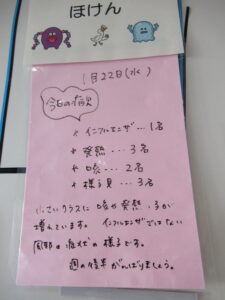 ほけん
1月22日(水)
今日の病欠
インフルエンザ…1名
発熱…3名
咳…2名
様子見…3名
小さいクラスに咳や発熱
増えています。インフルエンザではない
風邪の症状の様子です。
週の後半がんばりましょう。